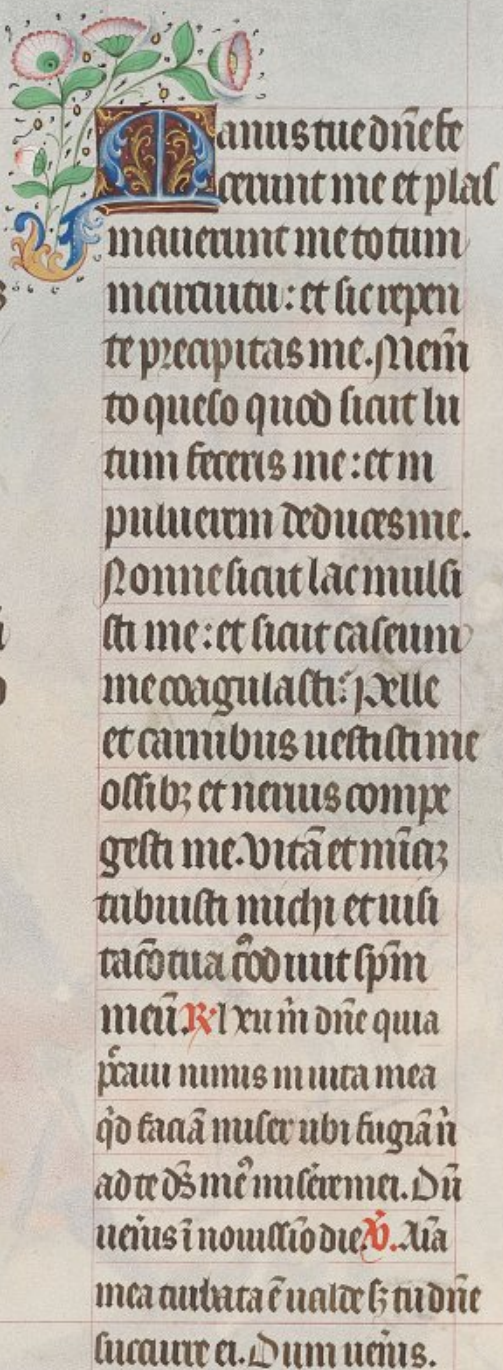 Manus tue dñe fe
cerunt me et plas
mauerunt me totum
in circuitu: et sic repen
te precipitas me. Mem̄
to queso quod sicut lu
tum feceris me: et in
puluerem deduces me.
Nonne sicut lac mulsi
sti me: et sicut caseum
me coagulasti: Pelle
et carnibus uestisti me
ossibꝫ et neruis compe
gisti me. Vitā et mīaꝫ
tribuisti michi et uisi
tacō tua c̄odiuit sp̄m
meū. ℟ xu m̄ dn̄e quia
p̄caui nimis in uita mea
qͥd faciā miser ubi fugiā n̄
ad te dꝫ me᷒ miserere mei. Dū
uen̄is ī nouissīo die ℣. Aīa
mea turbata ē ualde sꝫ tu dn̄e
succurre ei. Dum uen̄is.